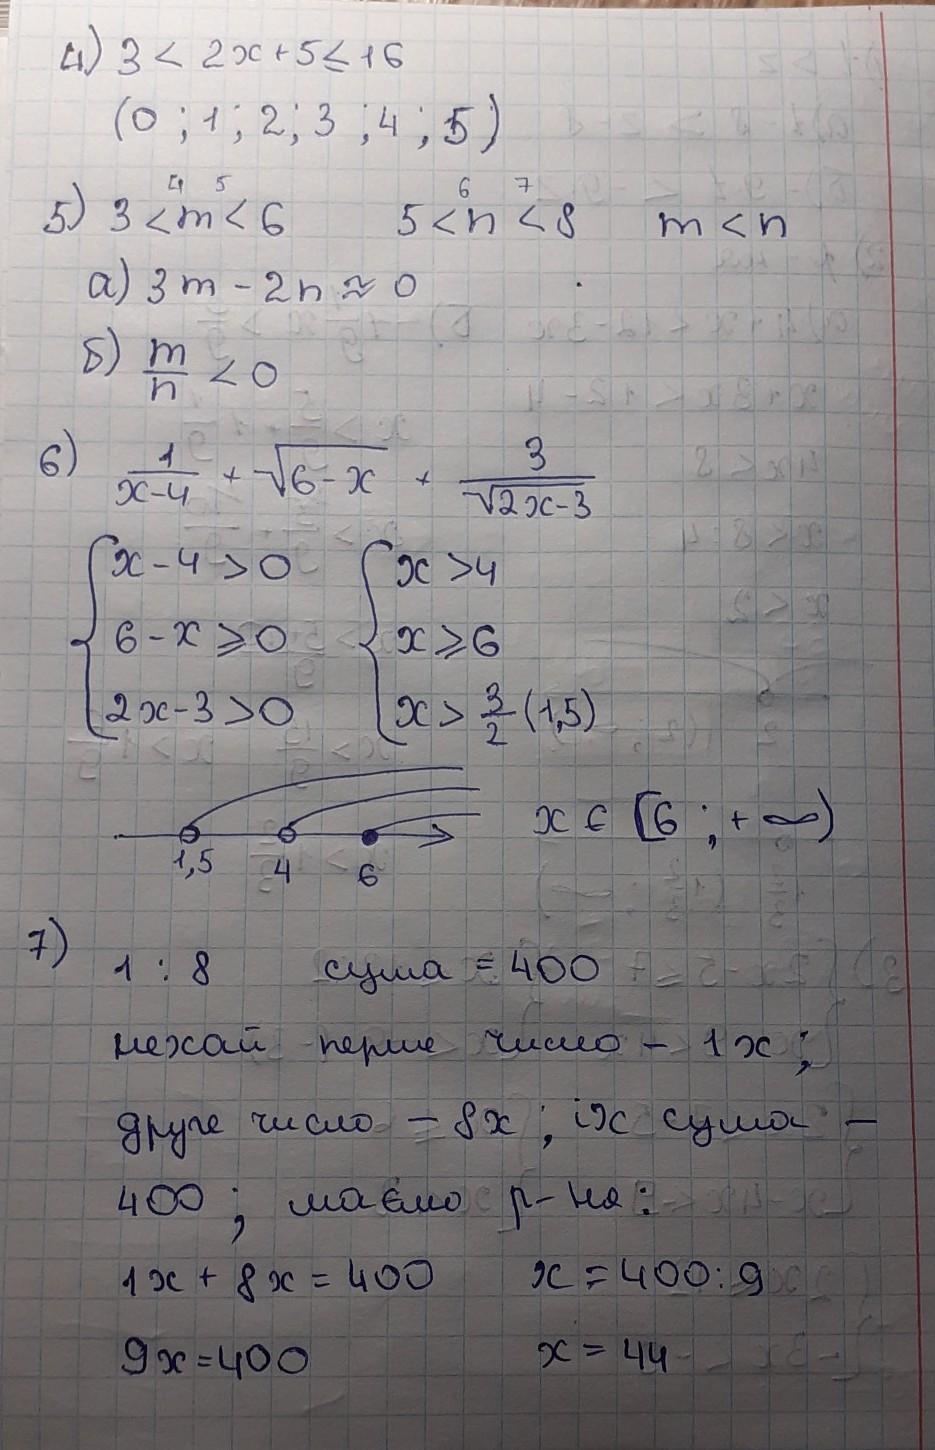 4) 3 < 2x+5 ≤ 16
(0 ; 1 ; 2 ; 3 ; 4 ; 5)
4 5 6 7
5) 3 < m < 6 5 < n < 8 m < n
а) 3m - 2n ≈ 0
б) m/n < 0
6) 1/(x-4) + √(6-x) + 3/√(2x-3)
{ x-4 > 0 { x > 4
6-x ⩾ 0 x ⩾ 6
2x-3 > 0 x > 3/2 (1,5)
x ∈ [6 ; +∞)
1,5 4 6
7)
1 : 8 сума = 400
нехай перше число - 1x ;
друге число - 8x ; їх сума -
400 ; маємо р-ня:
1x + 8x = 400 x = 400:9
9x = 400 x = 44